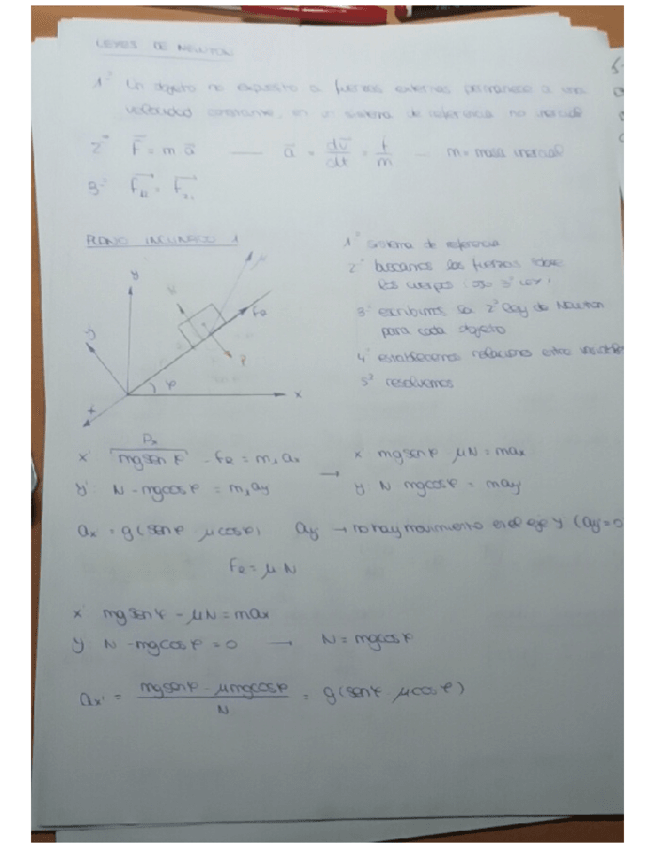 LEYES DE NEWTON
1º Un objeto no expuesto a fuerzas externas permanece a una
velocidad constante, en un sistema de referencia no inercial
2º F⃗ = m a⃗ —— a⃗ = dv⃗/dt = F/m — m = masa inercial
3º
PLANO INCLINADO 1
1º sistema de referencia
2º buscamos las fuerzas sobre
los cuerpos
3º escribimos la 2ª ley de Newton
para cada objeto
4º establecemos relaciones entre
5º resolvemos
y
y
N
FR
P
φ
x
x
Px
x' mg sen φ - FR = m, ax
y' N - mg cos φ = m, ay
→
x mg sen φ μN = max
y N mg cos φ = may
ax = g (sen φ μ cos φ) ay → no hay movimiento en el eje y (ay = 0
FR = μ N
x' mg sen φ - μN = max
y N - mg cos φ = 0 → N = mg cos φ
ax' = (mg sen φ - μ mg cos φ)/N = g (sen φ μ cos φ)